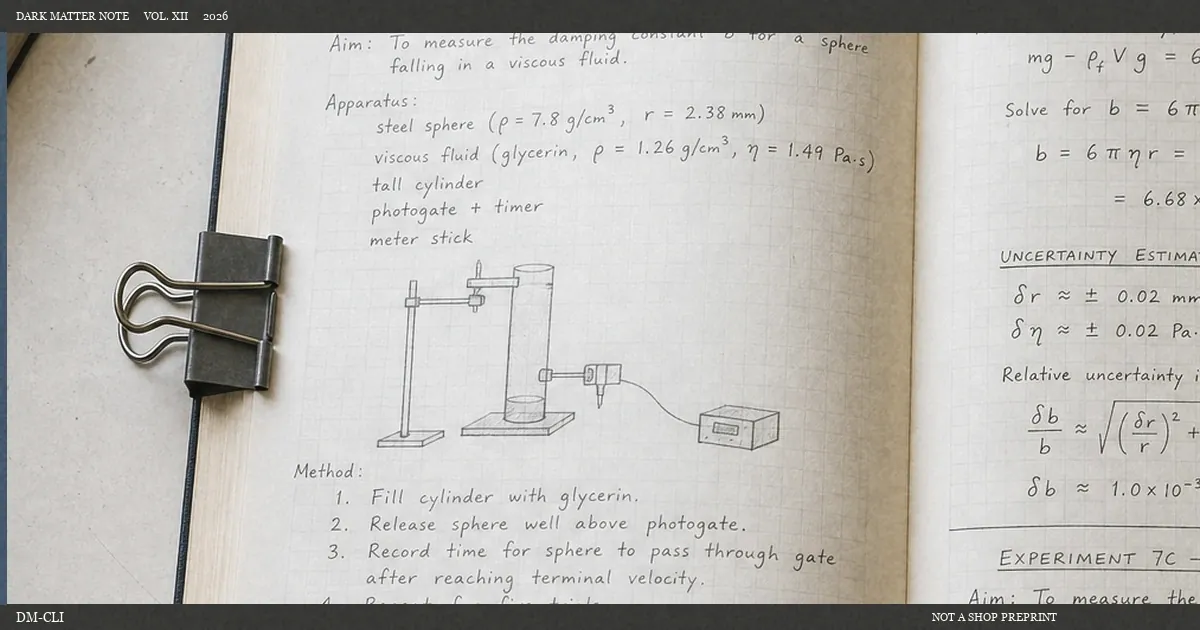 DARK MATTER NOTE VOL. XII 2026
Aim: To measure the damping constant b for a sphere
falling in a viscous fluid.
Apparatus:
steel sphere (ρ = 7.8 g/cm³, r = 2.38 mm)
viscous fluid (glycerin, ρ = 1.26 g/cm³, η = 1.49 Pa·s)
tall cylinder
photogate + timer
meter stick
Method:
1. Fill cylinder with glycerin.
2. Release sphere well above photogate.
3. Record time for sphere to pass through gate
after reaching terminal velocity.
mg − ρf V g = 6
Solve for b = 6 π
b = 6 π η r =
= 6.68 x
UNCERTAINTY ESTIMA
δr ≈ ± 0.02 mm
δη ≈ ± 0.02 Pa·
Relative uncertainty i
δb/b ≈ √(δr/r)² +
δb ≈ 1.0 x 10⁻³
EXPERIMENT 7C –
Aim: To measure the
DM-CLI NOT A SHOP PREPRINT